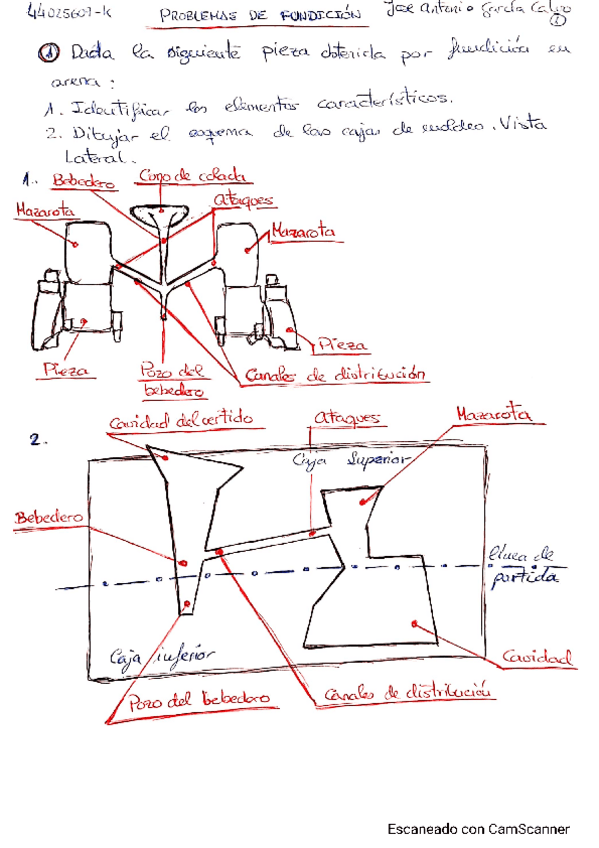 44025607-K PROBLEMAS DE FUNDICIÓN José Antonio García Calvo
1
① Dada la siguiente pieza obtenida por fundición en
arena:
1. Identificar los elementos característicos.
2. Dibujar el esquema de las cajas de moldeo. Vista
Lateral.
1.. Bebedero Cono de colada
ataques
Mazarota
Mazarota
Pieza
Pieza Pozo del bebedero Canales de distribución
Cavidad del vertido ataques Mazarota
2.
Caja Superior
Bebedero
línea de
partida
Caja inferior
Cavidad
Pozo del bebedero Canales de distribución
Escaneado con CamScanner